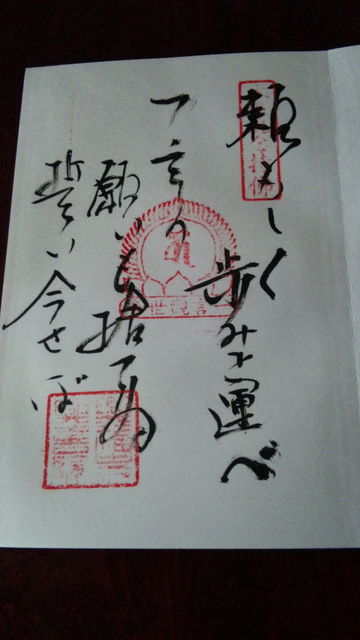 頼もしく
歩みを運べ
一言の
願いも捨てぬ
誓い今せば